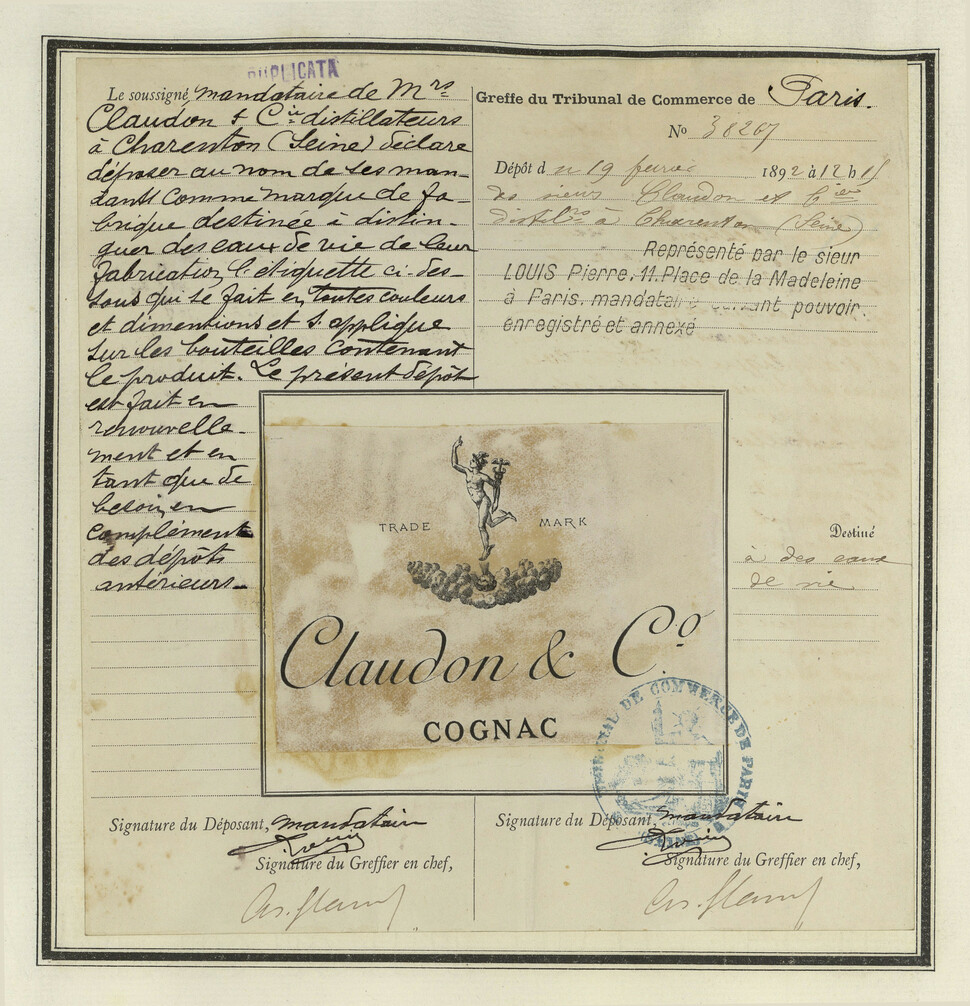 DUPLICATA
Le soussigné, mandataire de Mrs
Claudon & Cie distillateurs
à Charenton (Seine) déclare
déposer au nom de ses man-
dants comme marque de fa-
brique destinée à distin-
guer des eaux de vie de leur
fabrication, l'étiquette ci-des-
sous qui se fait en toutes couleurs
et dimentions et s'applique
sur les bouteilles contenant
le produit. Le présent dépôt
est fait en
renouvelle-
ment et en
tant que de
besoin, en
complément
des dépôts
antérieurs.
Greffe du Tribunal de Commerce de Paris.
No 38207
Dépôt du 19 fevrier 1892 à 12 h 15
des sieurs Claudon et Cie
distilrs à Charenton (Seine)
Représenté par le sieur
LOUIS Pierre, 11, Place de la Madeleine
à Paris, mandataire suivant pouvoir
enregistré et annexé
TRADE MARK
Claudon & Co.
COGNAC
Destiné
à des eaux
de vie
TRIBUNAL DE COMMERCE DE PARIS
Signature du Déposant, mandataire
Louis
Signature du Greffier en chef,
Signature du Déposant, mandataire
Louis
Signature du Greffier en chef,